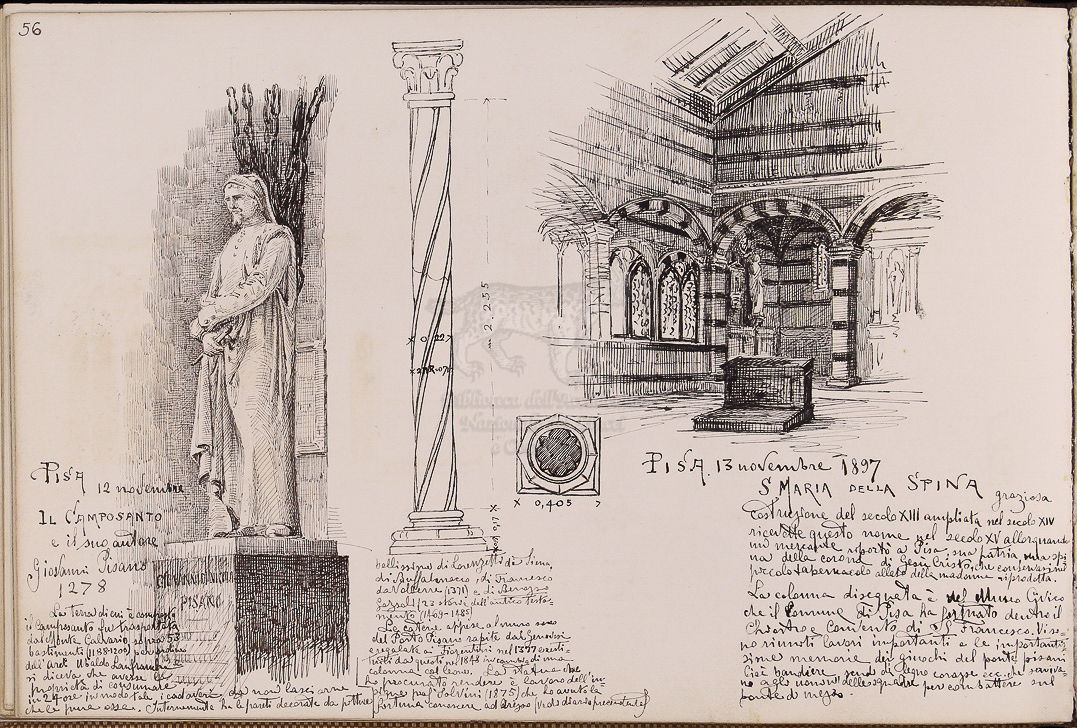 56
PISA 12 novembre
IL CAMPOSANTO
e il suo autore
Giovanni Pisano
1278
La terra di cui è composto
il Camposanto fu trasportata
dal Monte Calvario, sopra 53
bastimenti (1188-1200) per ordine
dell'Arciv. Ubaldo Lanfranchi
si diceva che avesse la
proprietà di consumare
in 24 ore in modo tale i cadaveri da non lasciarne
che le pure ossa. Internamente ha le pareti decorate da pitture
GIOVANNI NICOLA
PISANO
bellissime di Lorenzetti di Siena,
di Buffalmacco, di Francesco
da Volterra (1371) e di Benozzo
Gozzoli (23 storie dell'antico testa-
mento (1469-1485)
Le catene appese al muro sono
del Porto Pisano rapite dai Genovesi
e regalate ai Fiorentini nel 1377 e resti-
tuite da questi nel 1848
colonna e catene. La statua che
procurato rendere è lavoro dell'in-
prof Salvini (1875) che ho avuto la
fortuna conoscere ad Arezzo (vedi diario precedente)
2.255
× 0.22 ×
0.17
× 0,405 ×
PISA. 13 novembre 1897
S MARIA DELLA SPINA graziosa
costruzione del secolo XIII ampliata nel secolo XIV
ricevette questo nome nel secolo XV allorquando
un mercante riportò a Pisa, sua patria, una spi
na della corona di Gesù Cristo, che conservasi nel
piccolo tabernacolo allato della madonna riprodotta.
La colonna disegnata è nel Museo Civico
che il Comune di Pisa ha formato dentro il
Chiostro e Convento di S. Francesco. Vi so-
no riuniti lavori importanti e le importantis
sime memorie dei giuochi del ponte pisani
Cioè bandiere, scudi di legno corazze ecc. che serviva-
no agli uomini delle squadre per combattere sul
ponte di mezzo.
Biblioteca dell'Arc
Nazionale